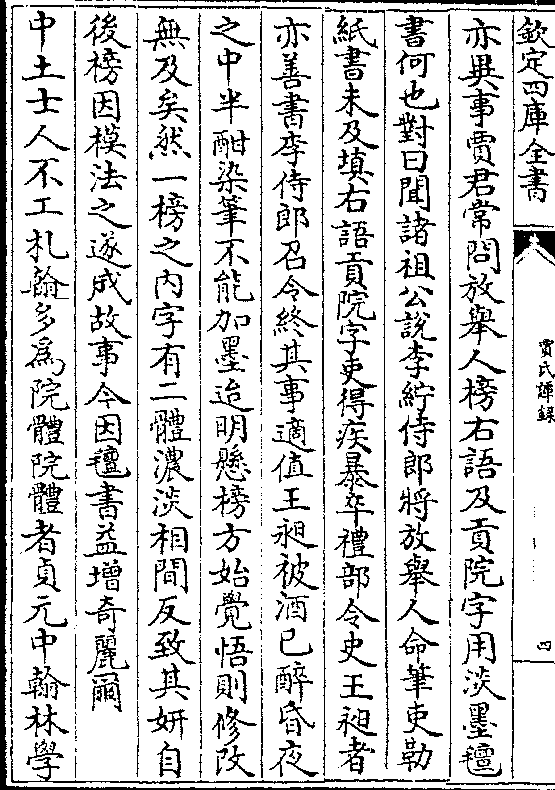 欽定四庫全書
賈氏譚録
四
亦異事賈君常問放舉人榜右語及貢院字用淡墨氊
書何也對曰聞諸祖公說李紵侍郎將放舉人命筆吏勒
紙書未及填右語貢院字吏得疾暴卒禮部令史王昶者
亦善書李侍郎召令終其事適值王昶被酒已醉昏夜
之中半酣染筆不能加墨迨明懸榜方始覺悟則修改
無及矣然一榜之内字有二體濃淡相間反致其妍自
後榜因模法之遂成故事今因氊書益增奇麗爾
中土士人不工札翰多為院體院體者貞元中翰林學